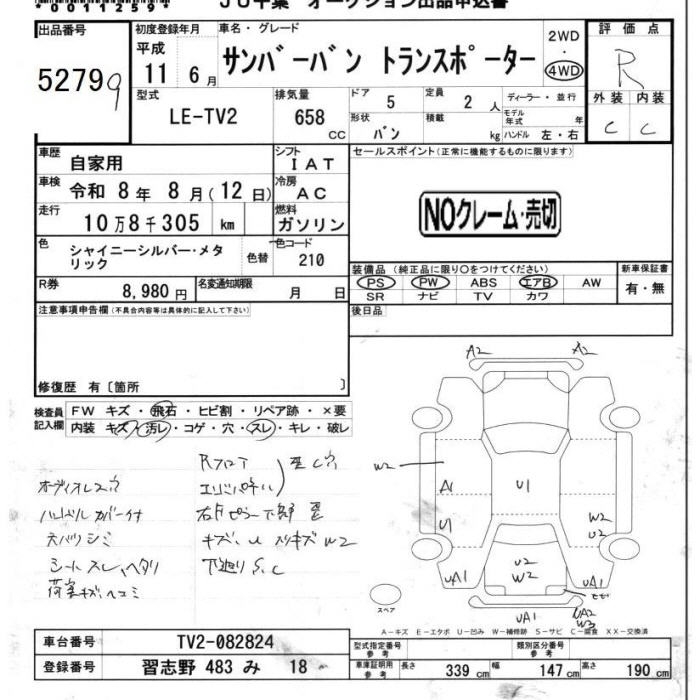 *0011259*
JU千葉 オークション出品申込書
出品番号
52799
初度登録年月
平成
11 6月
車名・グレード
サンバーバン トランスポーター
2WD
・
4WD
評価点
R
外装 内装
C C
型式
LE-TV2
排気量
658
CC
ドア 5
定員 2 人
ディーラー・並行
形状 バン
積載 kg
モデル年式 年
ハンドル 左・右
車歴
自家用
シフト
IAT
車検
令和 8年 8月(12日)
冷房
AC
走行
10万8千305 km
燃料
ガソリン
色
シャイニーシルバー・メタ
リック
色替
色コード
210
R券
8,980円
名変通知期限
月 日
セールスポイント(正常に機能するものに限ります)
NOクレーム・売切
装備品(純正品に限り〇をつけてください)
PS PW ABS エアB AW
SR ナビ TV カワ
新車保証書
有・無
後日品
注意事項申告欄(不具合内容等は具体的に記入して下さい)
修復歴 有〔箇所 〕
検査員
記入欄
FW キズ・飛石・ヒビ割・リペア跡・×要
内装 キズ・汚レ・コゲ・穴・スレ・キレ・破レ
オーディオレス
ハンドルカバー付
天バリシミ
シートスレ、ヘタリ
荷室キズ、ヘコミ
Rフロア
右Bピラー下部
キズ、U
W2
下廻りS、C
A2
A2
W2
A1
U1
U1
W2
U2
U2
W2
UA1
UA1
UA1
UA2
W3
スペア
A-キズ E-エクボ U-凹み W-補修跡 S-サビ C-腐食 XX-交換済
車台番号
TV2-082824
登録番号
習志野 483 み 18
型式指定番号
参考
類別区分番号
参考
車庫証明用
参考
長さ 339 cm
幅 147 cm
高さ 190 cm